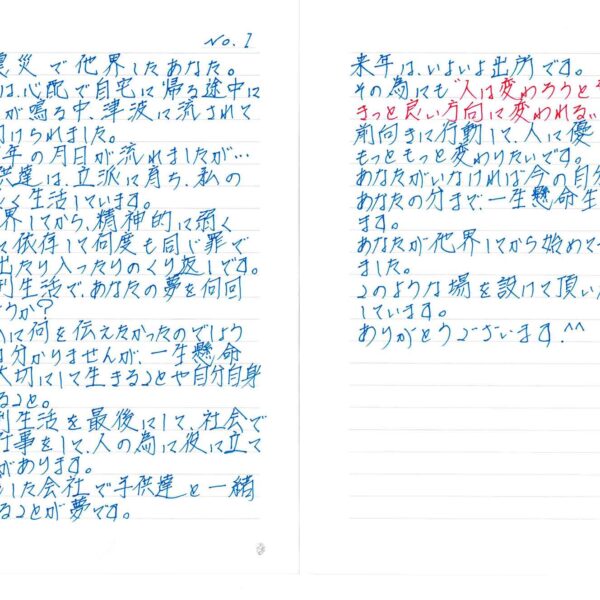 No.1
震災で他界したあなた。
は、心配で自宅に帰る途中に
が鳴る中、津波に流されて
けられました。
年の月日が流れましたが…
供達は、立派に育ち、私の
く生活しています。
界してから、精神的に弱く
て依存して何度も同じ罪で
出たり入ったりのくり返しです。
刑生活で、あなたの夢を何回
うか?
に何を伝えたかったのでしょう
は分かりませんが、一生懸命
大切にして生きることや自分自身
ること。
刑生活を最後にして、社会で
仕事をして、人の為に役に立て
があります。
した会社で子供達と一緒
ることが夢です。
来年は、いよいよ出所です。
その為にも"人は変わろうと
きっと良い方向に変われる..
前向きに行動して、人に優
もっともっと変わりたいです。
あなたがいなければ今の自分
あなたの分まで、一生懸命生
ます。
あなたが他界してから始めて
ました。
このような場を設けて頂い
しています。
ありがとうございます.^^